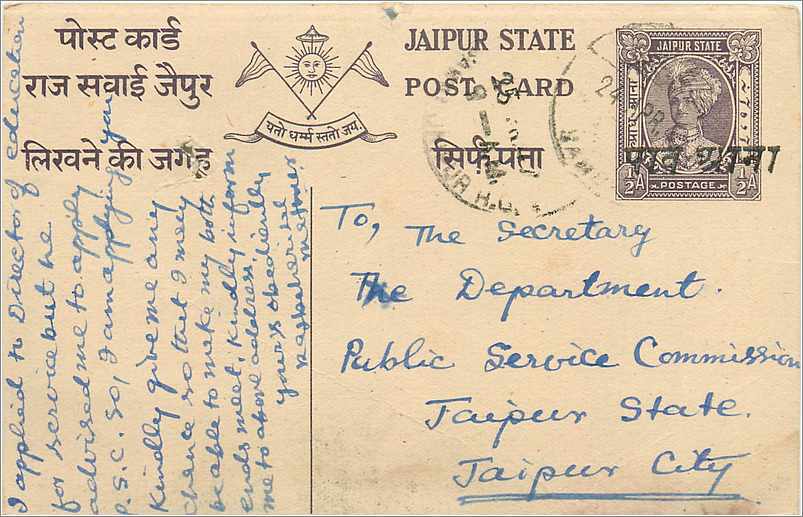 पोस्ट कार्ड
राज सवाई जैपुर
लिखने की जगह
यतो धर्म्म स्ततो जय.
JAIPUR STATE
POST CARD
सिर्फ़ पत्ता
JAIPUR STATE
पाव आना
½A
POSTAGE
½A
To,
The Secretary
The Department.
Public Service Commission
Jaipur State.
Jaipur City
I applied to Director of education
for service but he
advised me to apply
P.S.C. So, I am applying you
Kindly give me any
chance so that I may
be able to make my both
ends meet. Kindly inform
me to above address.
yours obediently